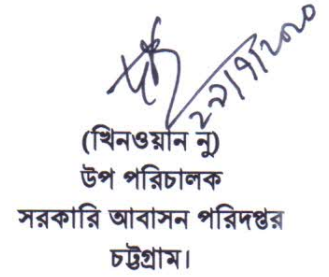 ২২/৭/২০২০
(খিনওয়ান নু)
উপ পরিচালক
সরকারি আবাসন পরিদপ্তর
চট্টগ্রাম।